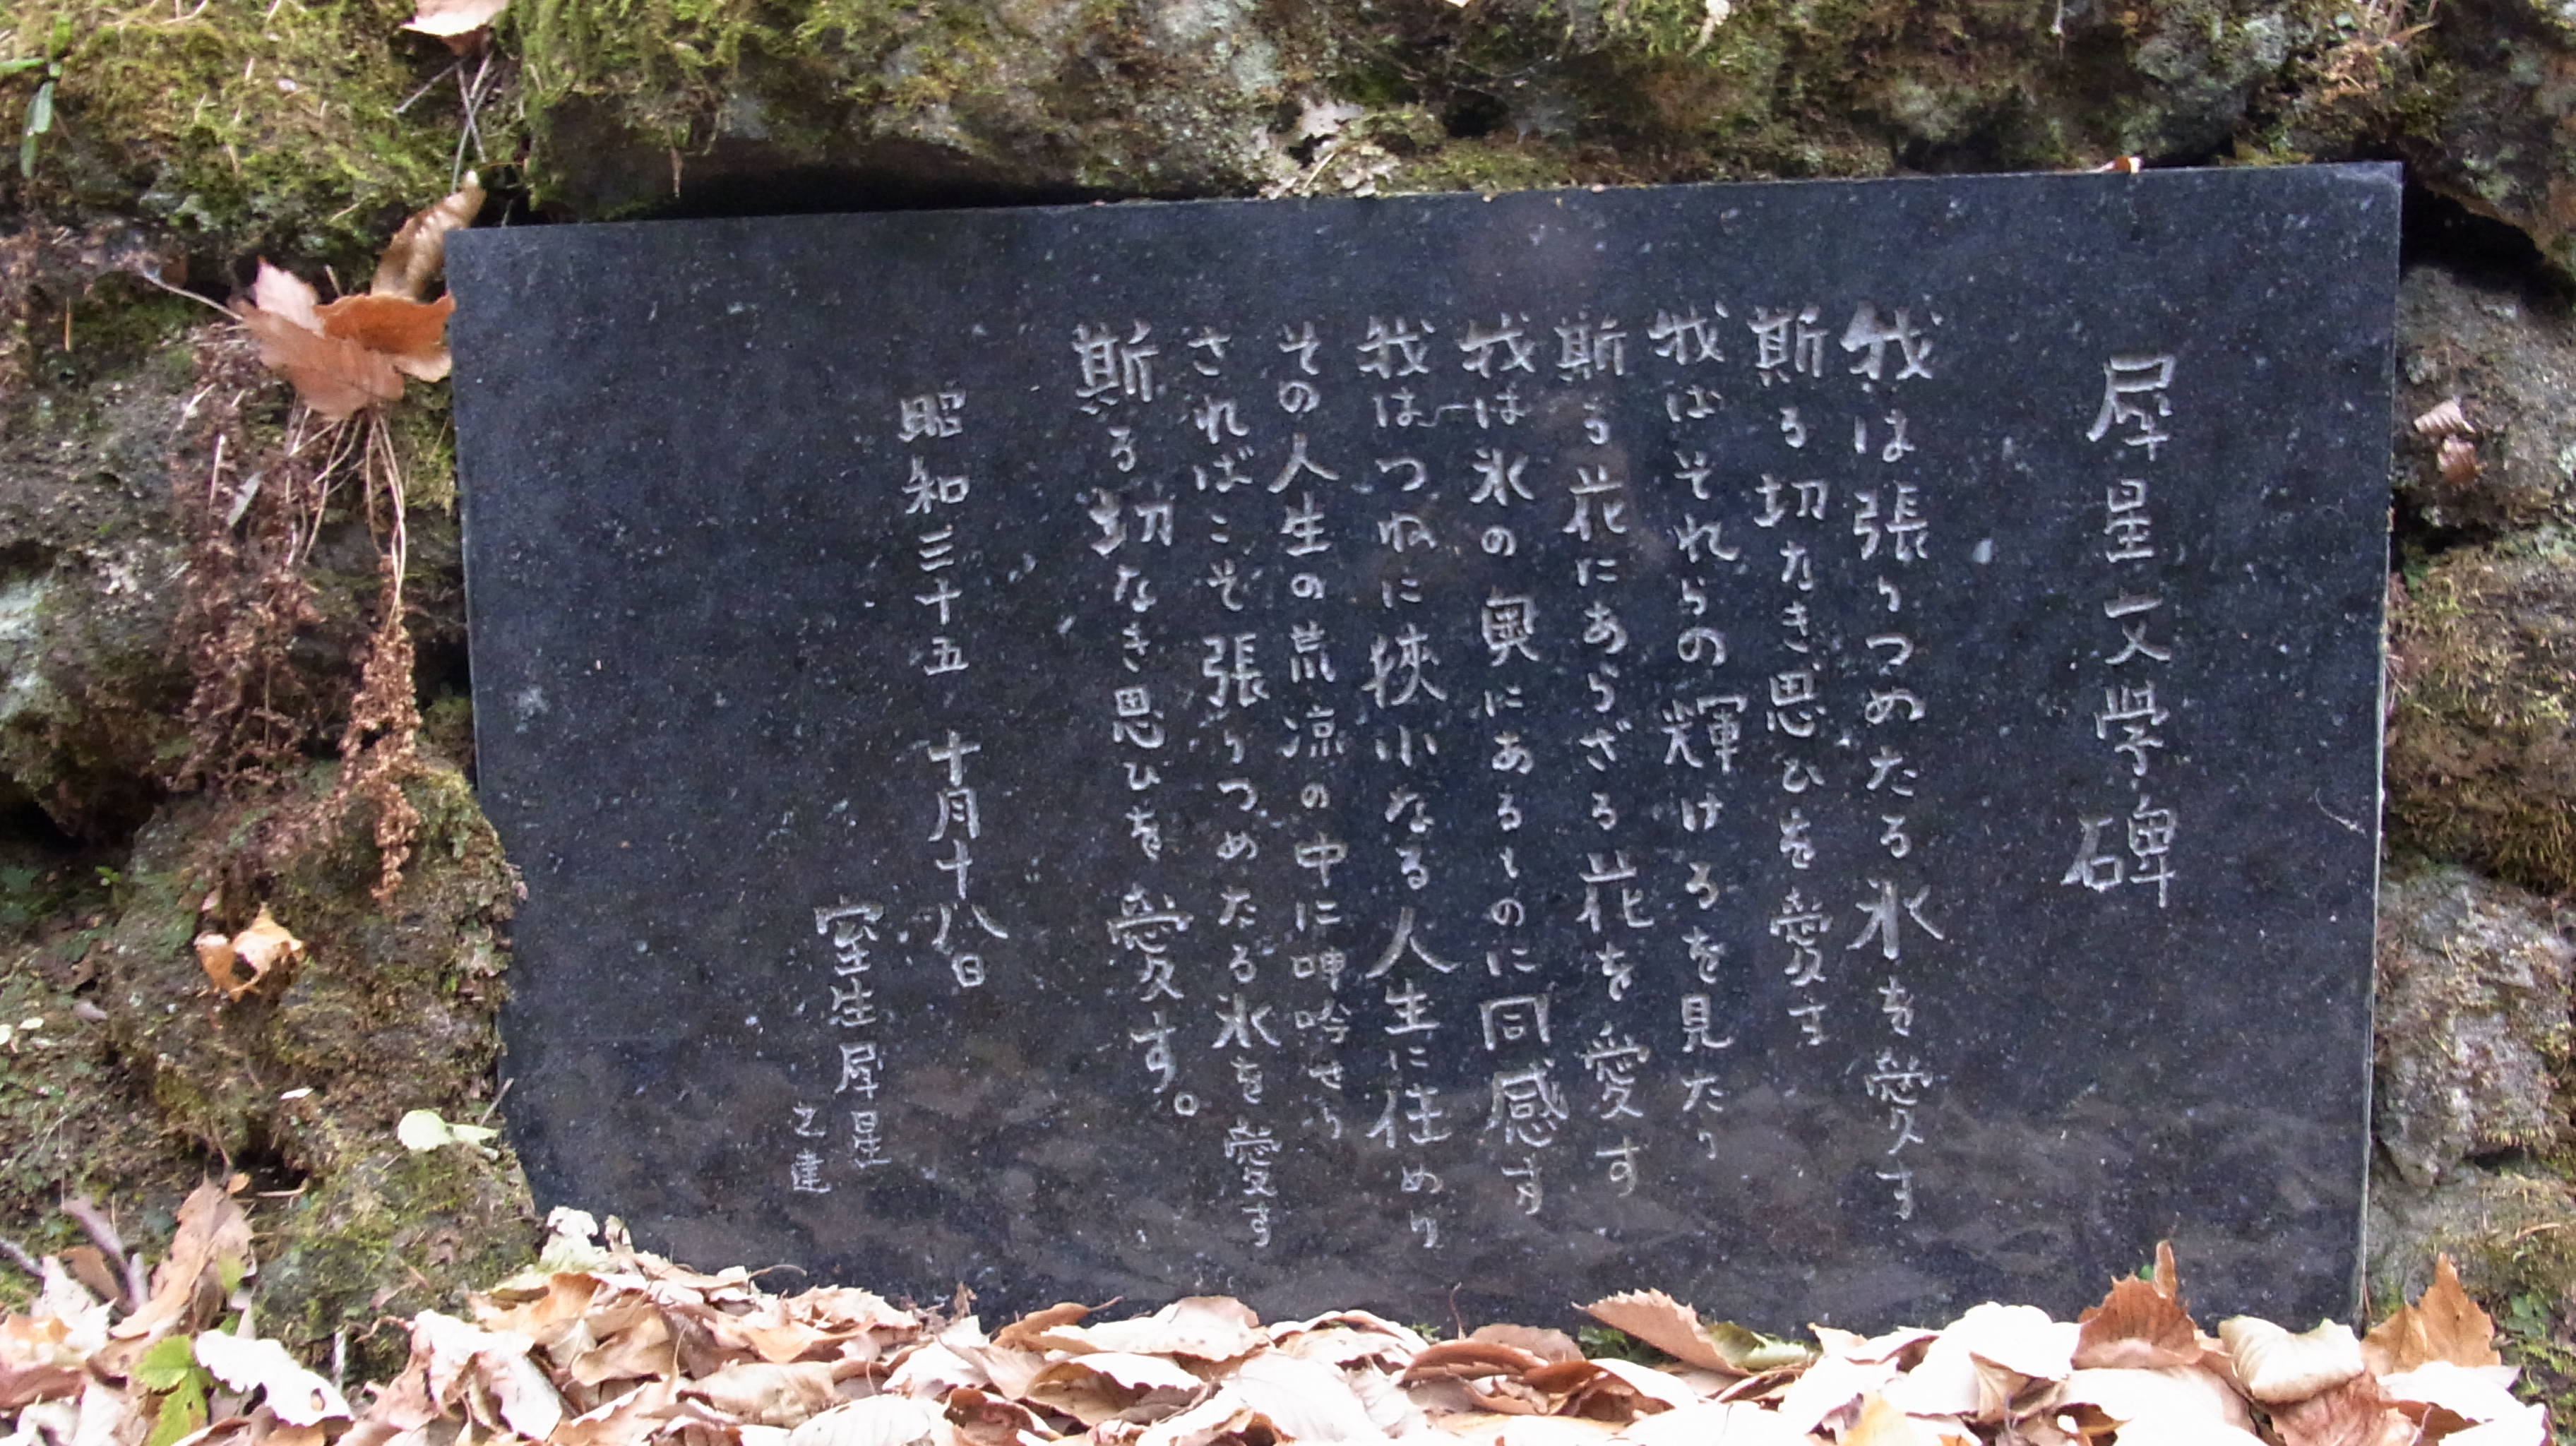 犀星文学碑
我は張りつめたる氷を愛す
斯る切なき思ひを愛す
我はそれらの輝けるを見たり
斯る花にあらざる花を愛す
我は氷の奥にあるものに同感す
我はつねに狭小なる人生に住めり
その人生の荒涼の中に呻吟せり
さればこそ張りつめたる氷を愛す
斯る切なき思ひを愛す。
昭和三十五 十月十八日
室生犀星
之建